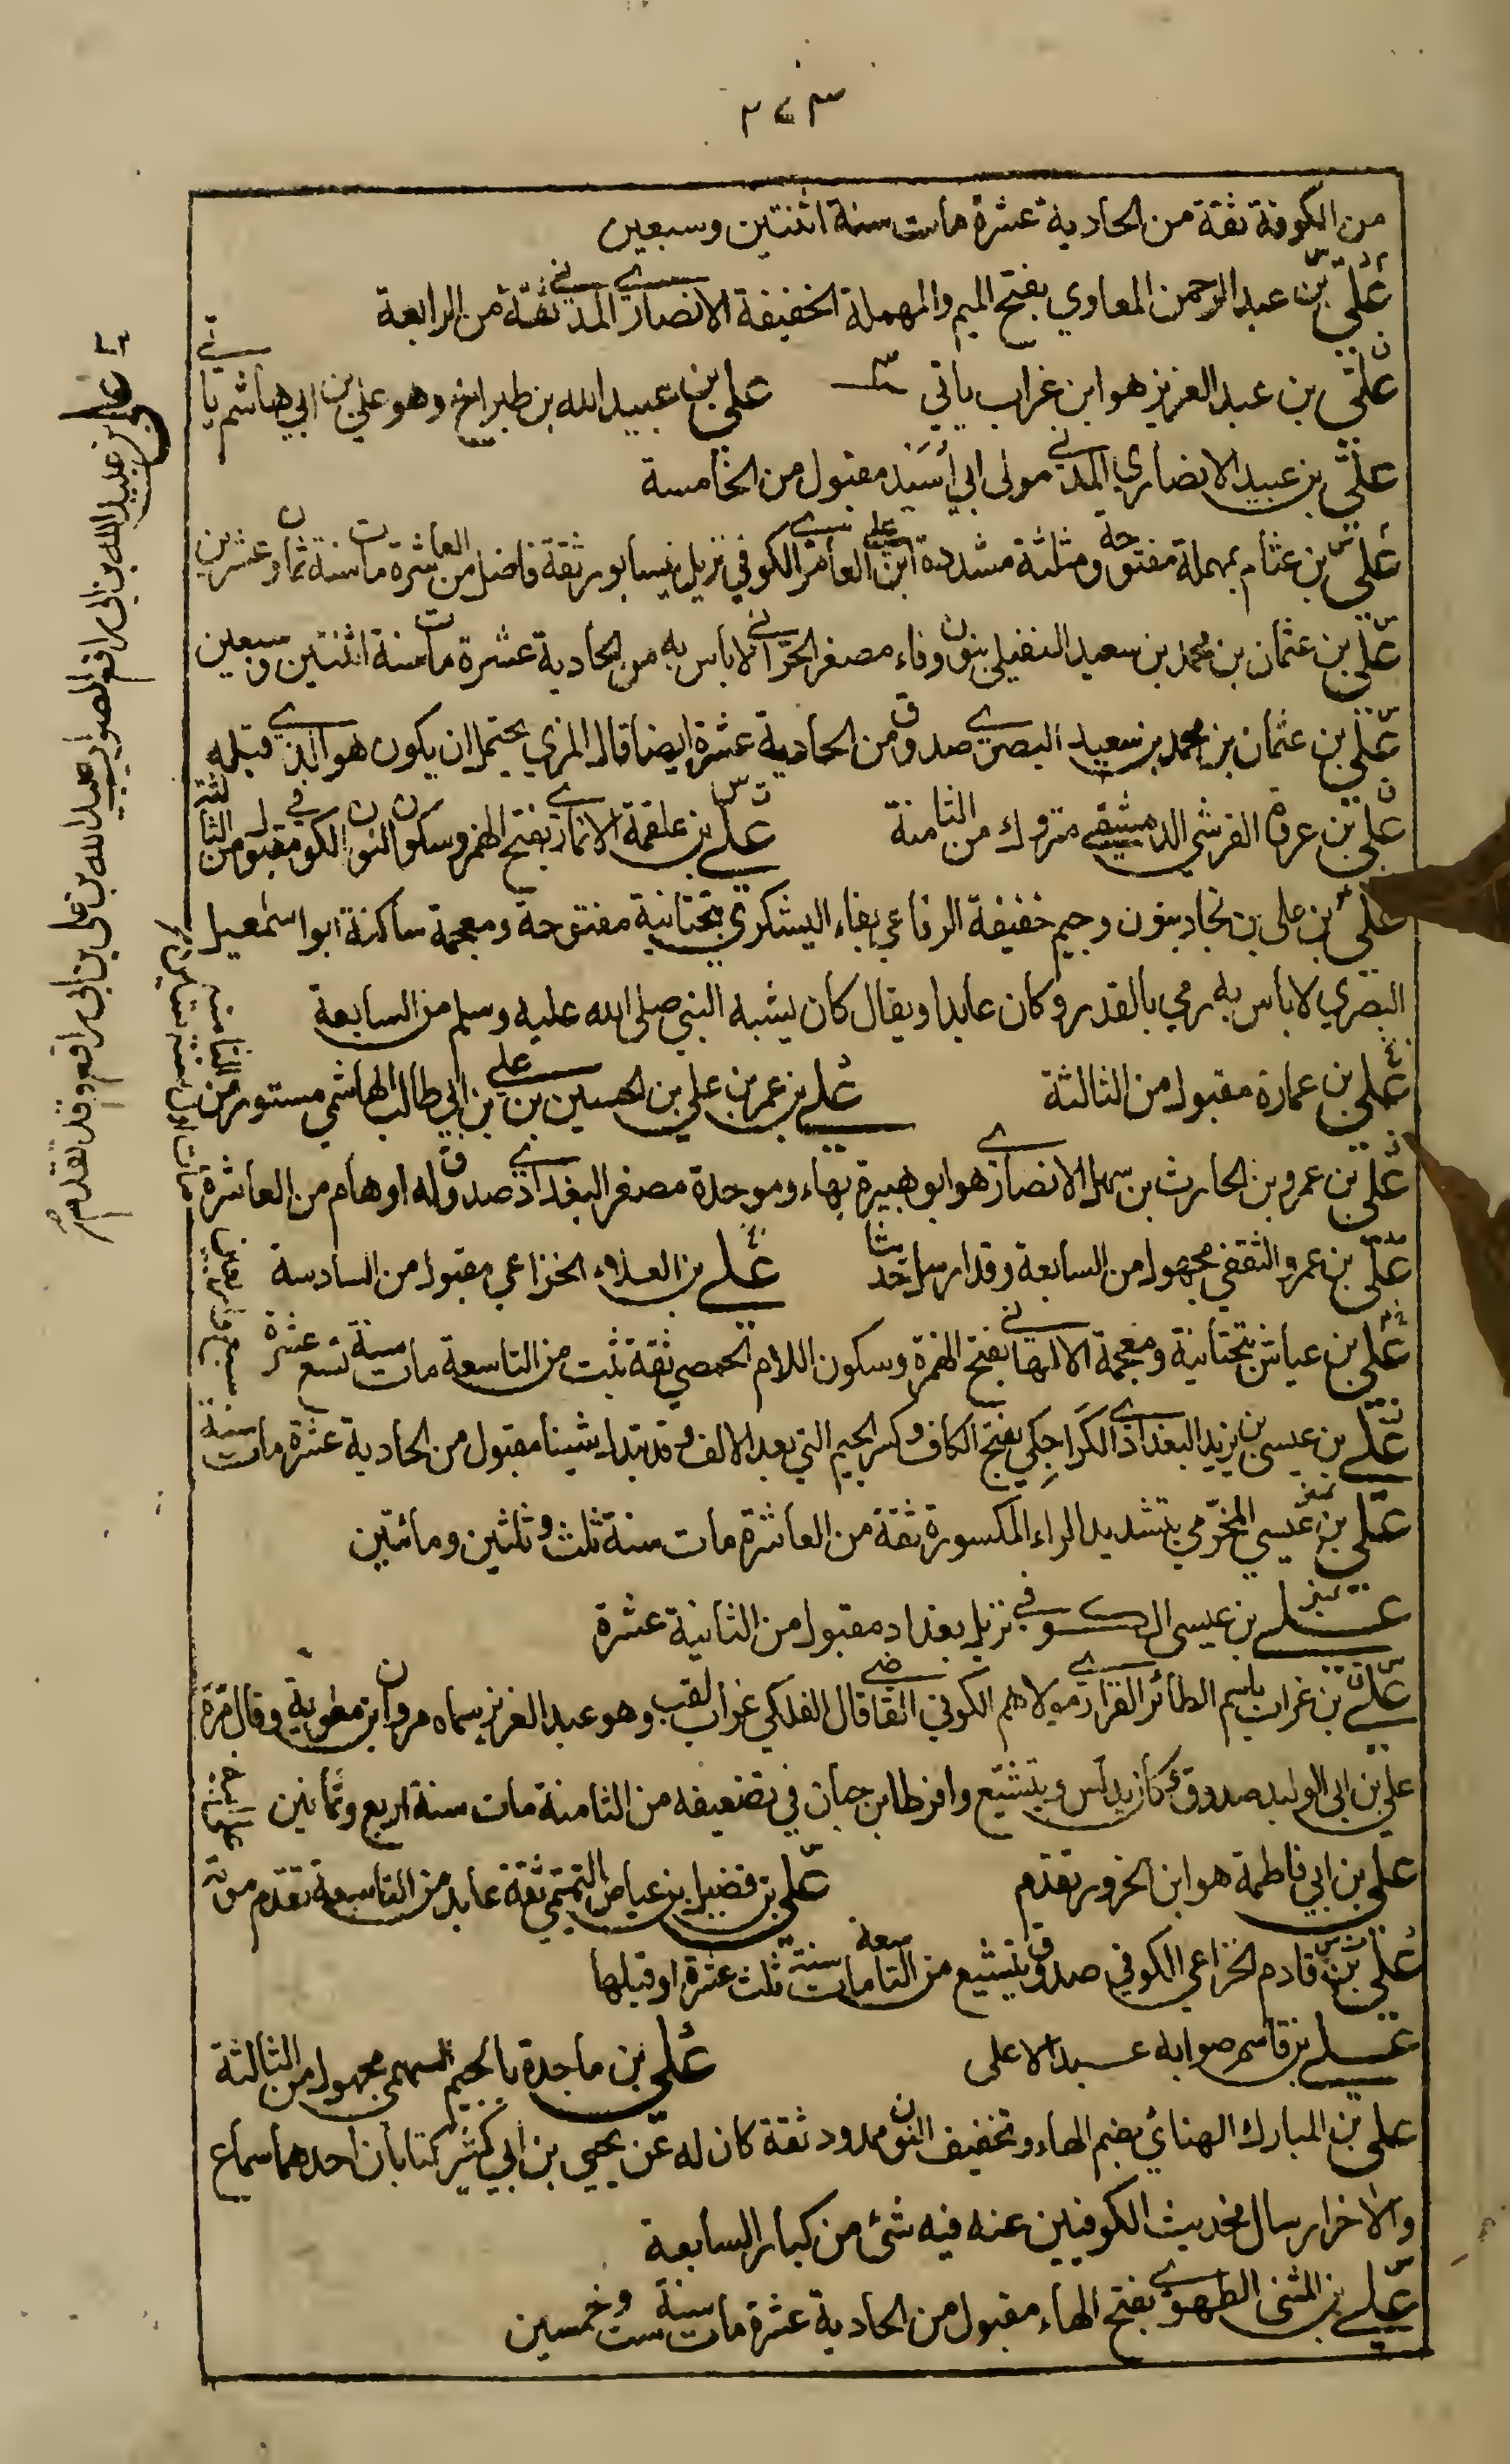 ٢٧٣
من الكوفة ثقة من الحادية عشرة مات سنة اثنتين وسبعين
علي بن عبد الرحمن المعاوي بفتح الميم والمهملة الخفيفة الانصاري المدني ثقة من الرابعة
علي بن عبد العزيز هو ابن غراب ياتي علي بن عبيد الله بن طبراخ وهو علي بن ابي هاشم ياتي
علي بن عبيد الانصاري المدني مولى ابي أسَيْد مقبول من الخامسة
علي بن عثام بمهملة مفتوحة ومثلثة مشددة ابن علي العامري الكوفي نزيل نيسابور ثقة فاضل من العاشرة مات سنة ثمان وعشرين
علي بن عثمان بن محمد بن سعيد النفيلي بنون وفاء مصغر الحرّاني لا باس به من الحادية عشرة مات سنة اثنتين وسبعين
علي بن عثمان بن محمد بن سعيد البصري صدوق من الحادية عشرة ايضا قال المزي يحتمل ان يكون هو الذي قبله
علي بن عروة القرشي الدمشقي متروك من الثامنة علي بن علقمة الانماري بفتح الهمزة وسكون النون الكوفي مقبول من الثالثة
علي بن علي بن نجاد بنون وجيم خفيفة الرفاعي بفاء اليشكري بتحتانية مفتوحة ومعجمة ساكنة ابو اسمعيل
البصري لا باس به رمي بالقدر وكان عابدا ويقال كان يشبه النبي صلى الله عليه وسلم من السابعة
علي بن عمارة مقبول من الثالثة علي بن عمر بن علي بن الحسين بن علي بن ابي طالب الهاشمي مستور من الثامنة
علي بن عمرو بن الحارث بن سهل الانصاري هو ابو هبيرة بهاء وموحدة مصغر البغدادي صدوق له اوهام من العاشرة
علي بن عمرو الثقفي مجهول من السابعة وقد ارسل حديثا علي بن العلاء الخزاعي مقبول من السادسة
علي بن عياش بتحتانية ومعجمة الالهاني بفتح الهمزة وسكون اللام الحمصي ثقة ثبت من التاسعة مات سنة تسع عشرة
علي بن عيسى بن يزيد البغدادي الكَرَاجِكي بفتح الكاف وكسر الجيم التي بعد الالف وقد تبدل شينا مقبول من الحادية عشرة مات سنة
سبع واربعين
علي بن عيسى المخرّمي بتشديد الراء المكسورة ثقة من العاشرة مات سنة ثلث وثلثين ومائتين
علي بن عيسى الكوفي نزيل بغداد مقبول من الثانية عشرة
علي بن غراب باسم الطائر الفزاري مولاهم الكوفي القاضي قال الفلكي غراب لقب وهو عبد العزيز سماه مروان بن معوية وقال مرة
علي بن ابي الوليد صدوق وكان يدلس ويتشيع وافرط ابن حبان في تضعيفه من الثامنة مات سنة اربع وثمانين
علي بن ابي فاطمة هو ابن الحزور تقدم علي بن فضيل بن عياض التميمي ثقة عابد من التاسعة تقدم موته
علي بن قادم الخزاعي الكوفي صدوق يتشيع من التاسعة مات سنة ثلث عشرة او قبلها
علي بن قاسم صوابه عبد الاعلى علي بن ماجدة بالجيم السهمي مجهول من الثالثة
علي بن المبارك الهنائي بضم الهاء وتخفيف النون ممدود ثقة كان له عن يحيى بن ابي كثير كتابان احدهما سماع
والاخر ارسال فحديث الكوفيين عنه فيه شئ من كبار السابعة
علي بن المثنى الطهوي بفتح الهاء مقبول من الحادية عشرة مات سنة ست وخمسين
علي بن عبيد الله بن ابي رافع الصواب عبيد الله بن علي بن ابي رافع وقد تقدم